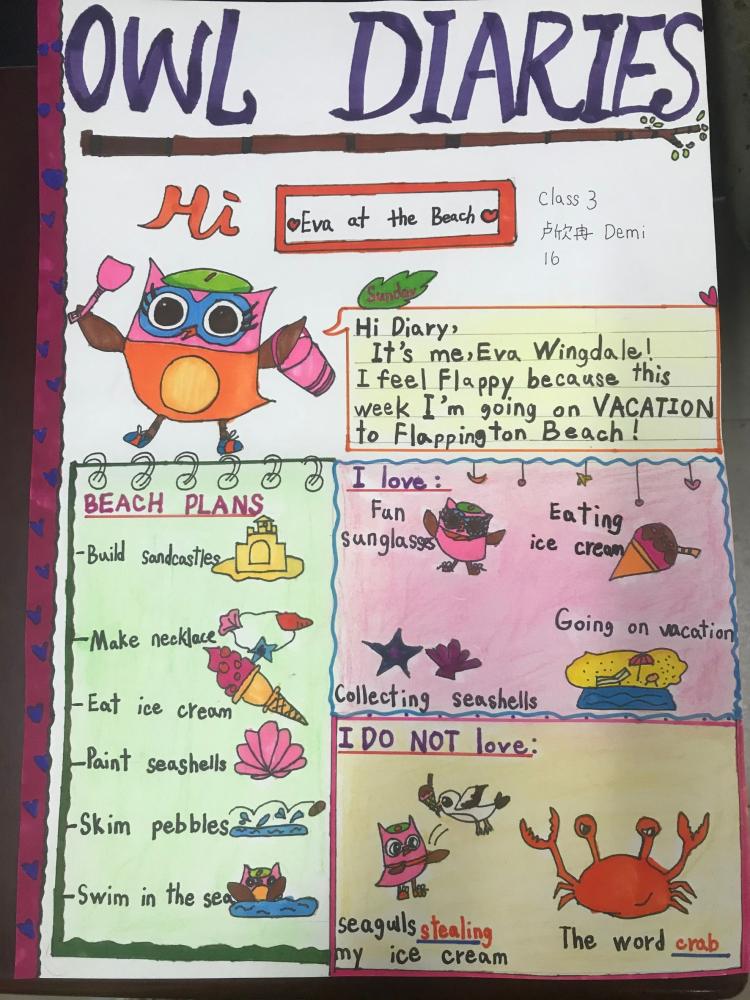 OWL DIARIES
Hi
Eva at the Beach
Class 3
卢欣冉 Demi
16
Sunday
Hi Diary,
It's me, Eva Wingdale!
I feel Flappy because this
week I'm going on VACATION
to Flappington Beach!
BEACH PLANS
-Build sandcastles
-Make necklace
-Eat ice cream
-Paint seashells
-Skim pebbles
-Swim in the sea
I love:
Fun
sunglasses
Eating
ice cream
Collecting seashells
Going on vacation
I DO NOT love:
seaguls stealing
my ice cream
The word crab